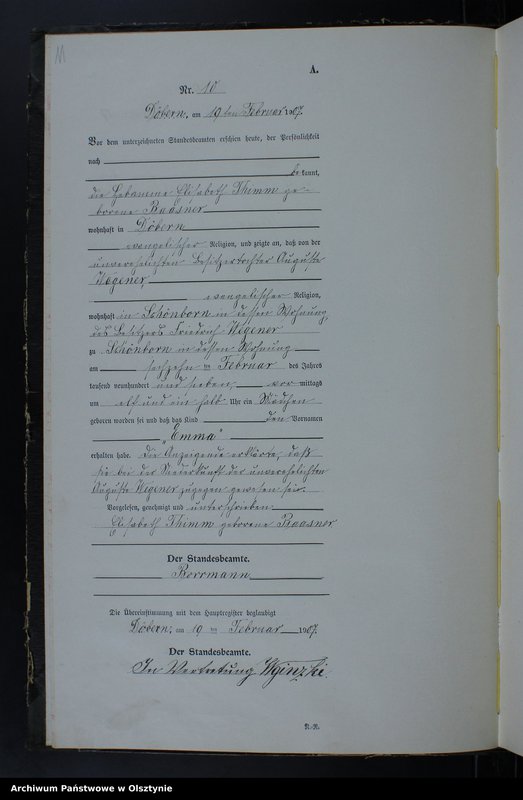 A.
Nr. 10
Döbern, am 19ten Februar 1907.
Vor dem unterzeichneten Standesbeamten erschien heute, der Persönlichkeit
nach
be kannt,
die Hebamme Elisabeth Thimm ge-
borene Baasner
wohnhaft in Döbern
evangelischer Religion, und zeigte an, daß von der
unverehelichten Besitzertochter Auguste
Wegener,
evangelischer Religion,
wohnhaft in Schönborn in dessen Wohnung
des Besitzers Friedrich Wegener
zu Schönborn in dessen Wohnung
am sechzehn ten Februar des Jahres
tausend neunhundert und sieben vor mittags
um elf und ein halb Uhr ein Mädchen
geboren worden sei und daß das Kind den Vornamen
„Emma"
erhalten habe. Die Anzeigende erklärte, daß
sie bei der Niederkunft der unverehelichten
Auguste Wegener zugegen gewesen sei.
Vorgelesen, genehmigt und unterschrieben.
Elisabeth Thimm geborene Baasner
Der Standesbeamte.
Borrmann
Die Übereinstimmung mit dem Hauptregister beglaubigt
Döbern, am 19 ten Februar 1907.
Der Standesbeamte.
In Vertretung
Archiwum Państwowe w Olsztynie